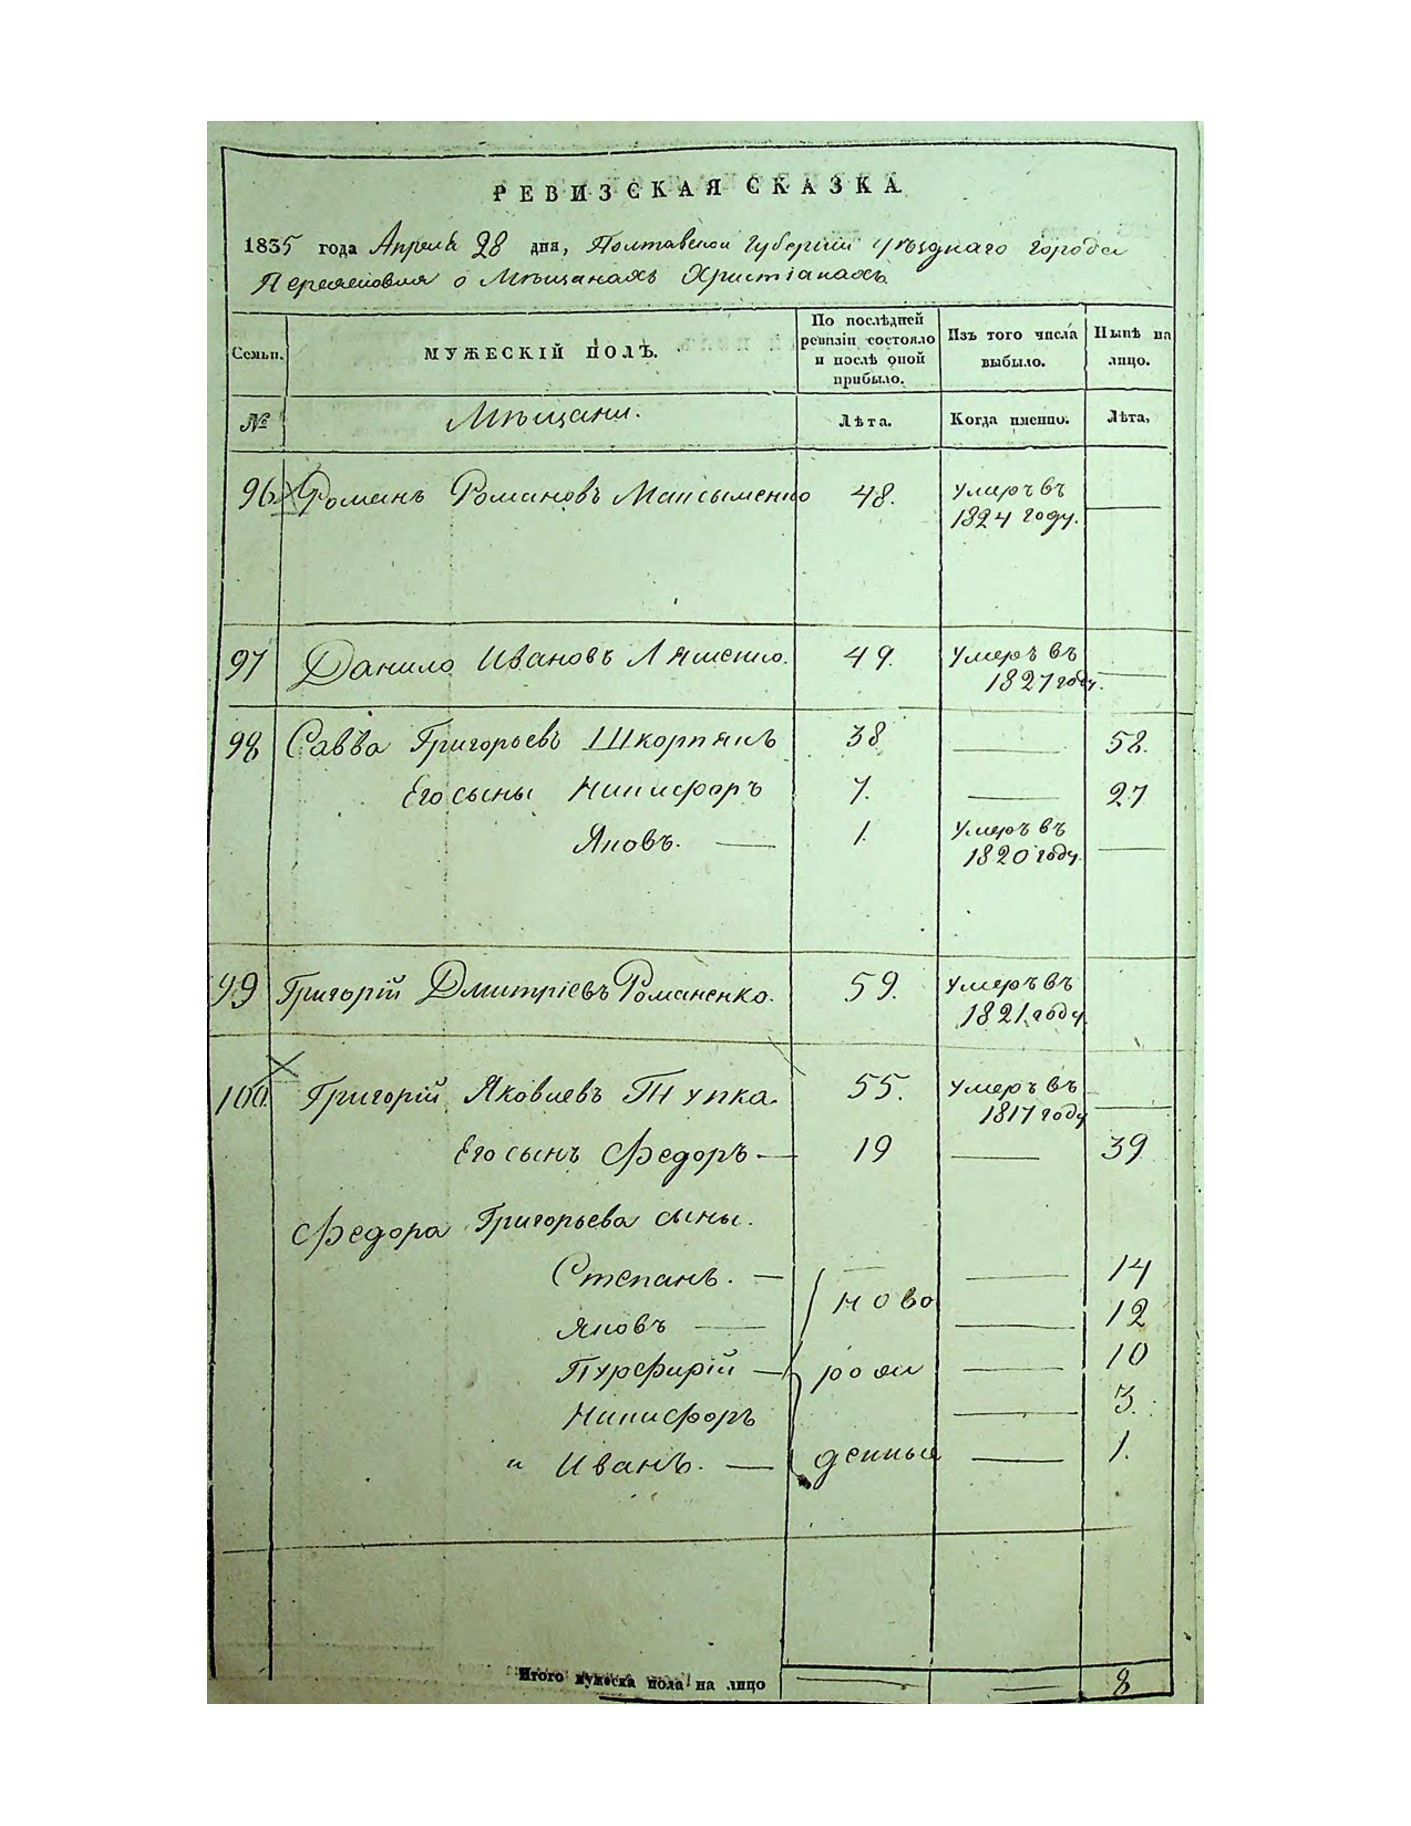 РЕВИЗСКАЯ СКАЗКА
1835 года Апреля 28 дня, Полтавской Губернии уѣзднаго города
Переяславля о Мѣщанахъ Христіанахъ
Семьи. МУЖЕСКІЙ ПОЛЪ. По послѣдней ревизіи состояло и послѣ оной прибыло. Изъ того числа выбыло. Нынѣ на лицо.
№ Мѣщани. Лѣта. Когда именно. Лѣта.
96 Романъ Романовъ Максыменко 48. умеръ въ
1824 году.
97 Данило Ивановъ Ляшенко. 49. Умеръ въ
1827 году.
98 Савва Григорьевъ Шкорпякъ 38 58.
Его сыны Никифоръ 7. 27
Яковъ. 1. Умеръ въ
1820 году.
99 Григорій Дмитріевъ Романенко. 59. Умеръ въ
1821 году
100. Григорій Яковлевъ Тупка. 55. Умеръ въ
1817 году
Его сынъ Федоръ 19 39
Федора Григорьева сыны.
Степанъ. 14
ново
Яковъ 12
Пурфирій рож 10
Никифоръ 3.
и Иванъ. денные 1.
Итого мужеска пола на лицо 8